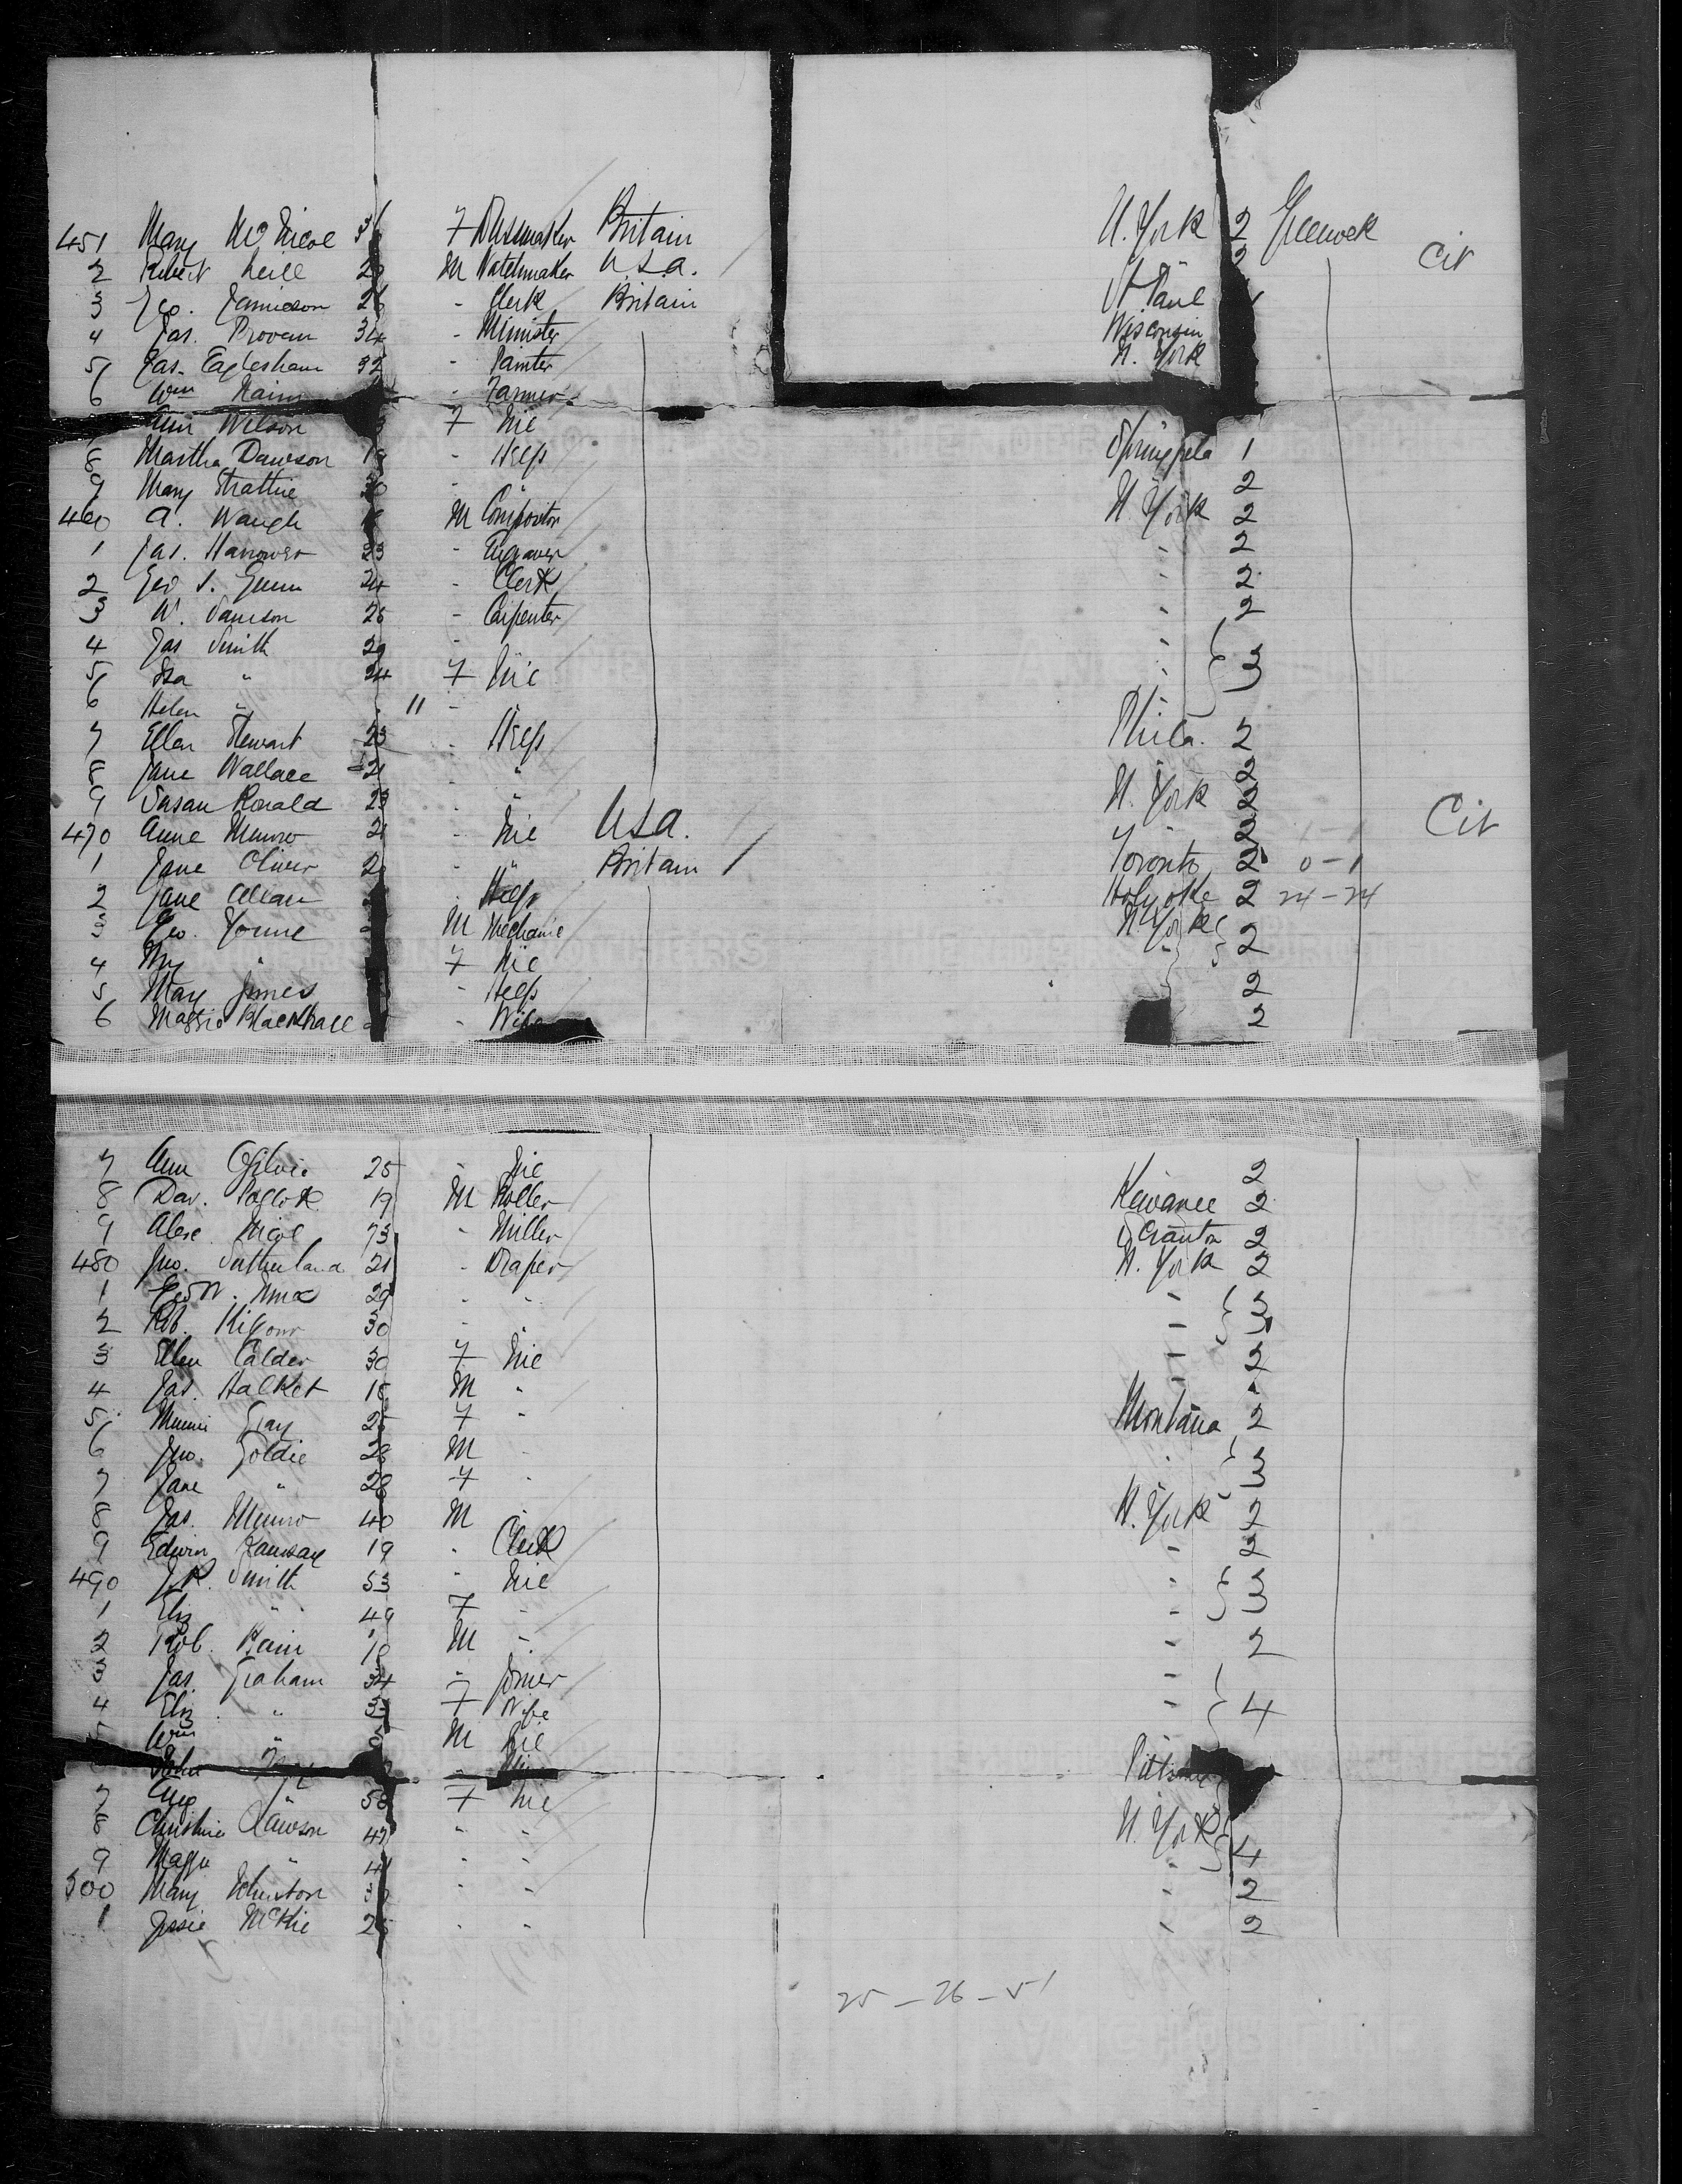 451 Mary McNicol 36 F Dressmaker Britain N. York 2 Greenock
2 Robert Neill M Watchmaker U.S.A. " 2 Cit
3 Geo. Jamieson 26 - Clerk Britain St Paul 1
4 Jas. Provan 34 - Minister Wisconsin
5 Jas. Eaglesham 32 - Painter N. York
6 Wm - Farmer
Ann Wilson F Nil
8 Martha Dawson 19 - Help Springfield 1
9 Mary Strathie 30 - " 2
460 A. Waugh M Compositor N. York 2
1 Jas. Harrower 33 - Engraver " 2
2 Geo S. Gunn 24 - Clerk " 2
3 W. Samson 26 - Carpenter " 2
4 Jas Smith 29 - "
5 Isa " 24 F Nil " 3
6 Helen " 11 - "
7 Ellen Stewart 23 - Help Phila. 2
8 Jane Wallace 21 - " " 2
9 Susan Ronald 23 - " N. York 2
470 Anne Munro 21 - Nil U.S.A. " 2 1-1 Cit
1 Jane Oliver - " Britain Toronto 2 0-1
2 Jane Allan - Help Holyoke 2 24-24
3 Geo. M Mechanic N. York
4 Mrs " F Nil " 2
5 Mary Jones - Help 2
6 Maggie Blackhall - Wife 2
7 Ann Ogilvie 25 - Nil 2
8 Dav. Pollok 19 M Roller Kewanee 2
9 Alex. Nicol - Miller Scranton 2
480 Jno. Sutherland 21 - Draper N. York 2
1 Geo W. 29 - " "
2 Rob. Kilgour 30 - " " 3
3 Ellen Calder 30 F Nil " 2
4 Jas. Halket 18 M " " "
5 Minnie Gray 25 F - Montana 2
6 Jno. Goldie 28 M - "
7 Jane " 28 F - " 3
8 Jas. Munro 40 M - N. York 2
9 Edwin Ramsay 19 - Clerk " 2
490 J.R. Smith 53 - Nil "
1 Eliz " 49 F - " 3
2 Rob. Bain 18 M - " 2
3 Jas. Graham 34 - Joiner "
4 Eliz. " F Wife " 4
5 Wm " M Nil
John
7 " F Nil
8 Christina Lawson 47 - - N. York
9 Maggie " - - " 4
500 Mary Johnston - - " 2
1 Jessie McKie 25 - - " 2
25 - 26 - 51